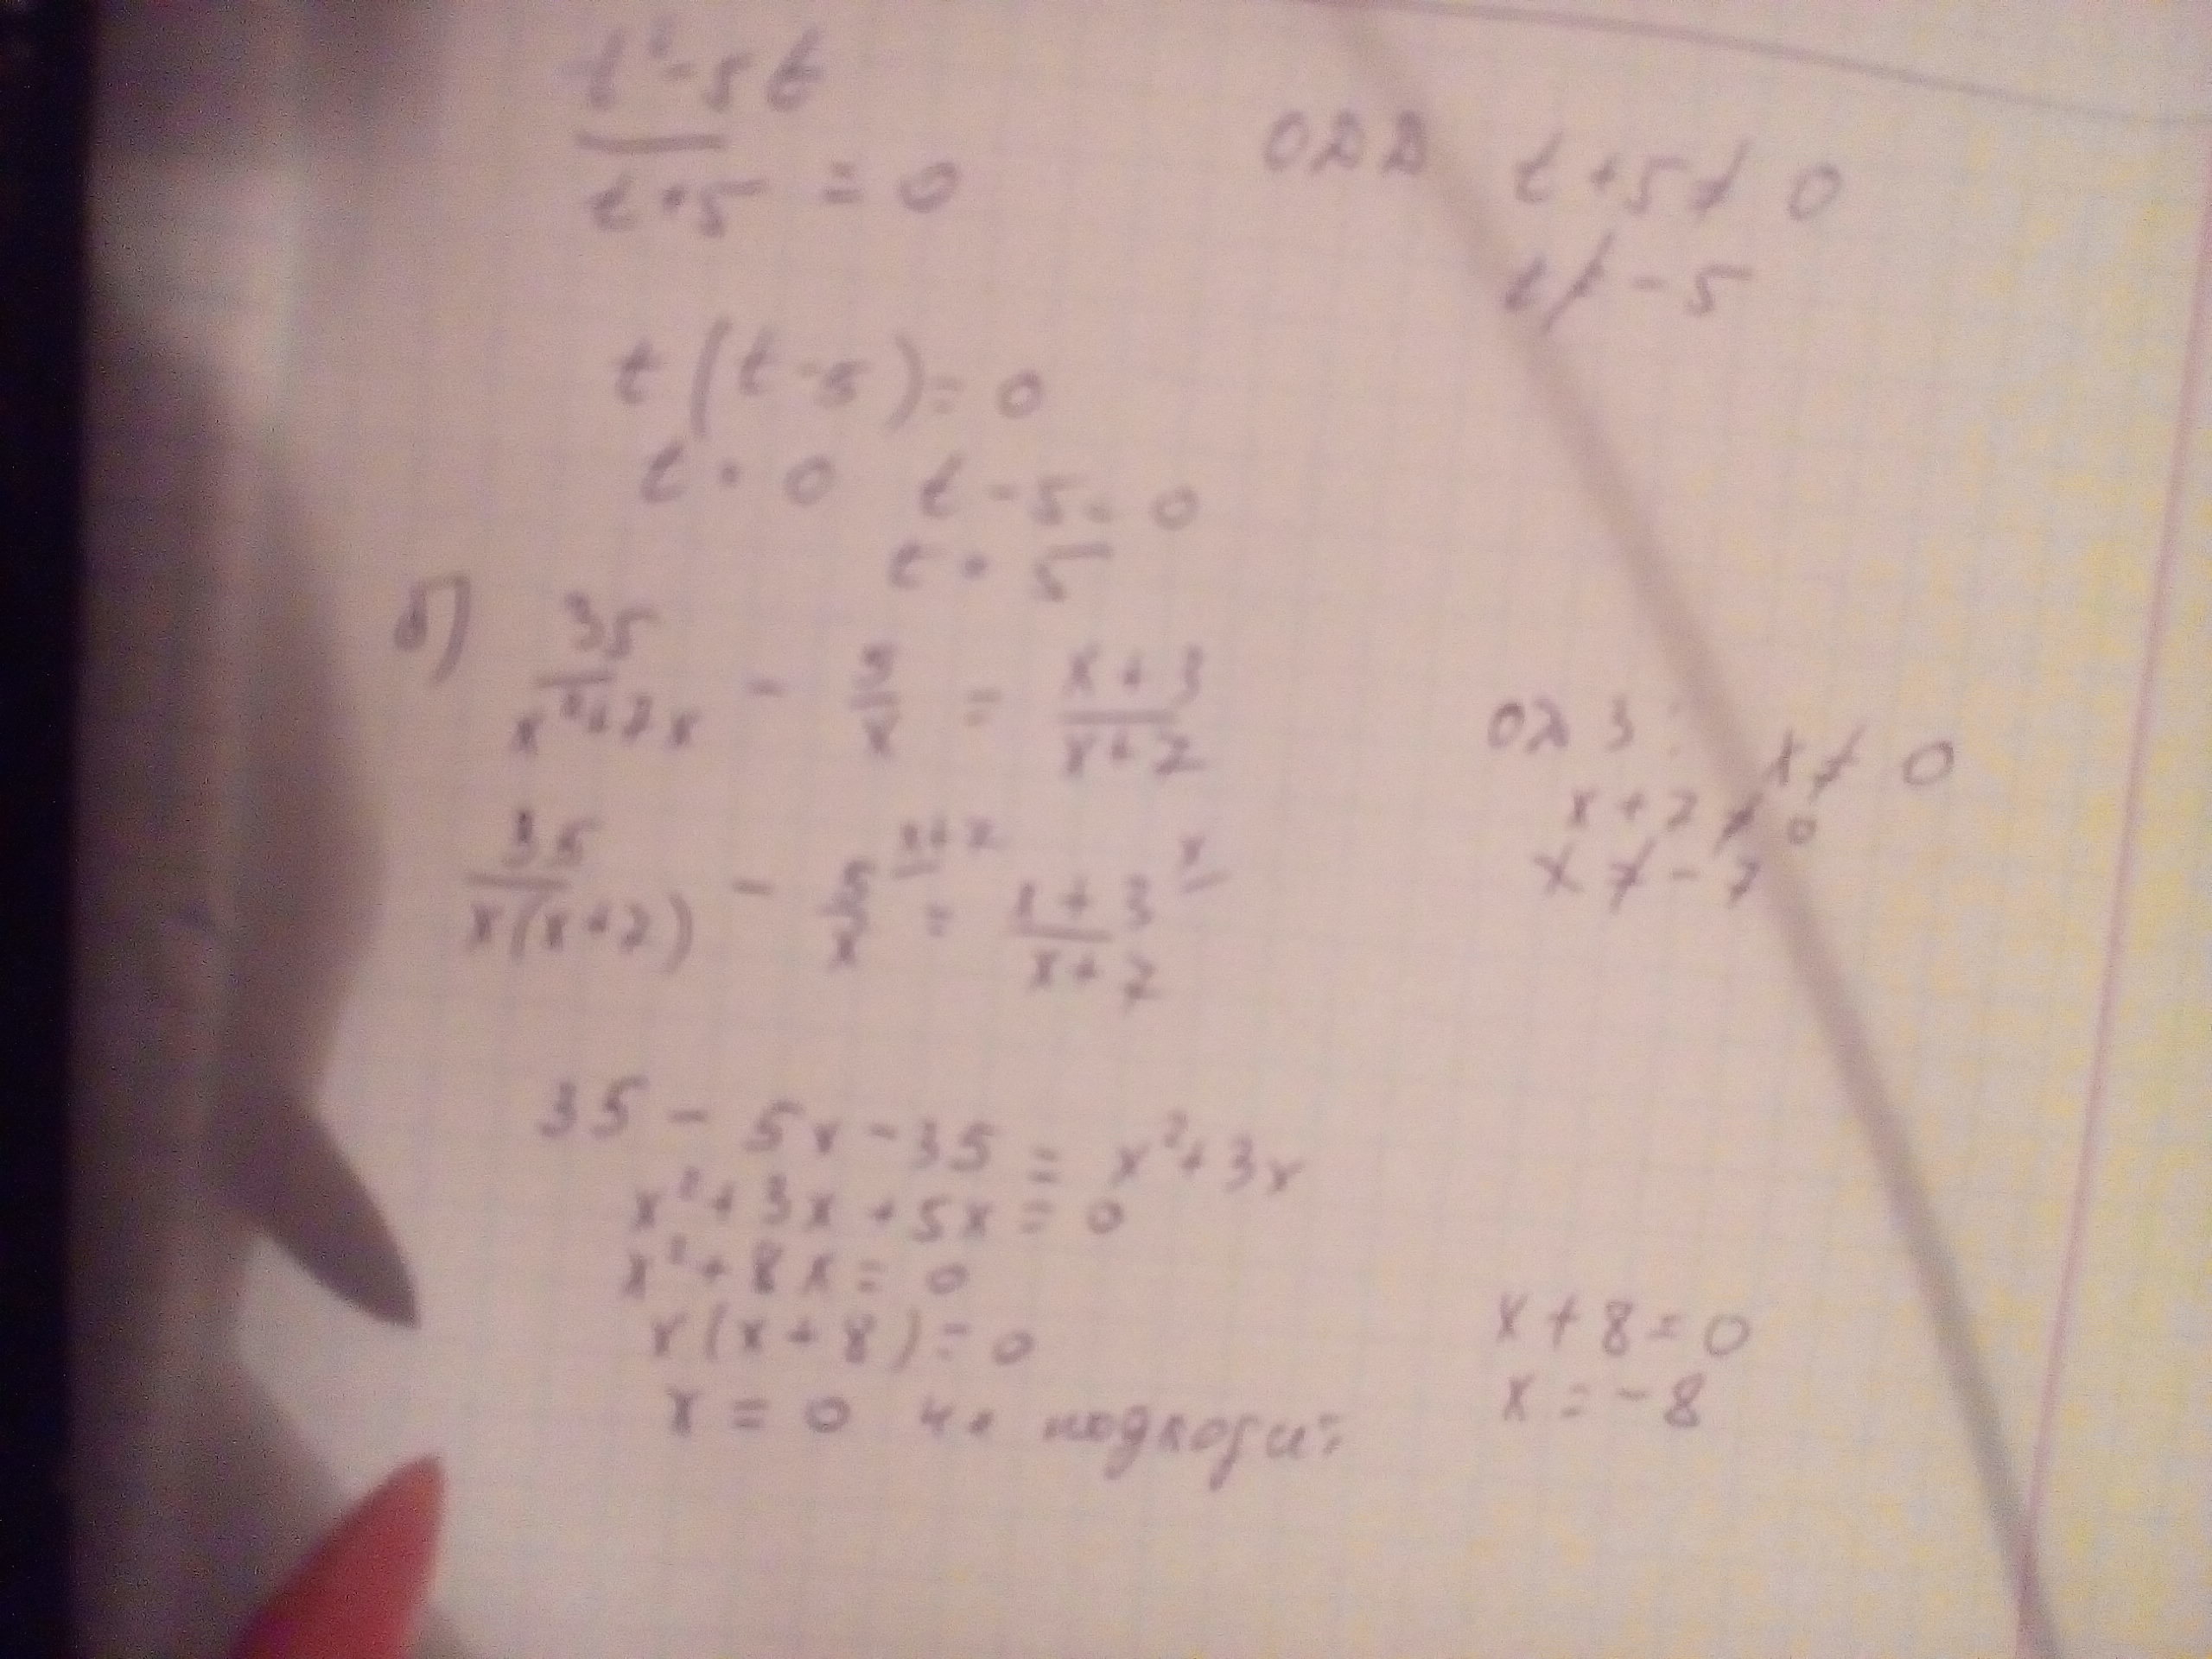 t² - 5t
t + 5 = 0
ОДЗ t + 5 ≠ 0
t ≠ - 5
t(t - 5) = 0
t = 0 t - 5 = 0
t = 5
б) 35/(x² + 7x) - 5/x = (x + 3)/(x + 7)
ОДЗ: x ≠ 0
x + 7 ≠ 0
x ≠ - 7
35/(x(x + 7)) - 5/x x+7 = (x + 3)/(x + 7) x
35 - 5x - 35 = x² + 3x
x² + 3x + 5x = 0
x² + 8x = 0
x(x + 8) = 0
x + 8 = 0
x = 0 не подходит
x = - 8